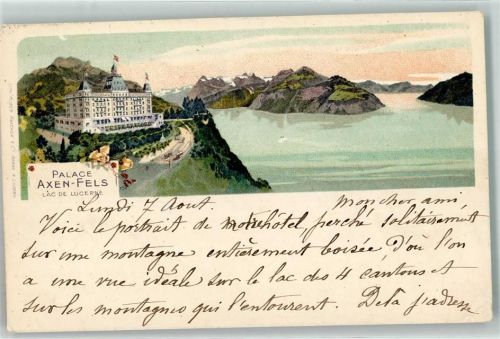 PALACE
AXEN-FELS
LAC DE LUCERNE
Lundi 7 Aout. Mon cher ami,
Voici le portrait de notre hôtel, perché solitairement
sur une montagne entièrement boisée, d'ou l'on
a une vue idéale sur le lac des 4 cantons et
sur les montagnes qui l'entourent. De là j'adresse